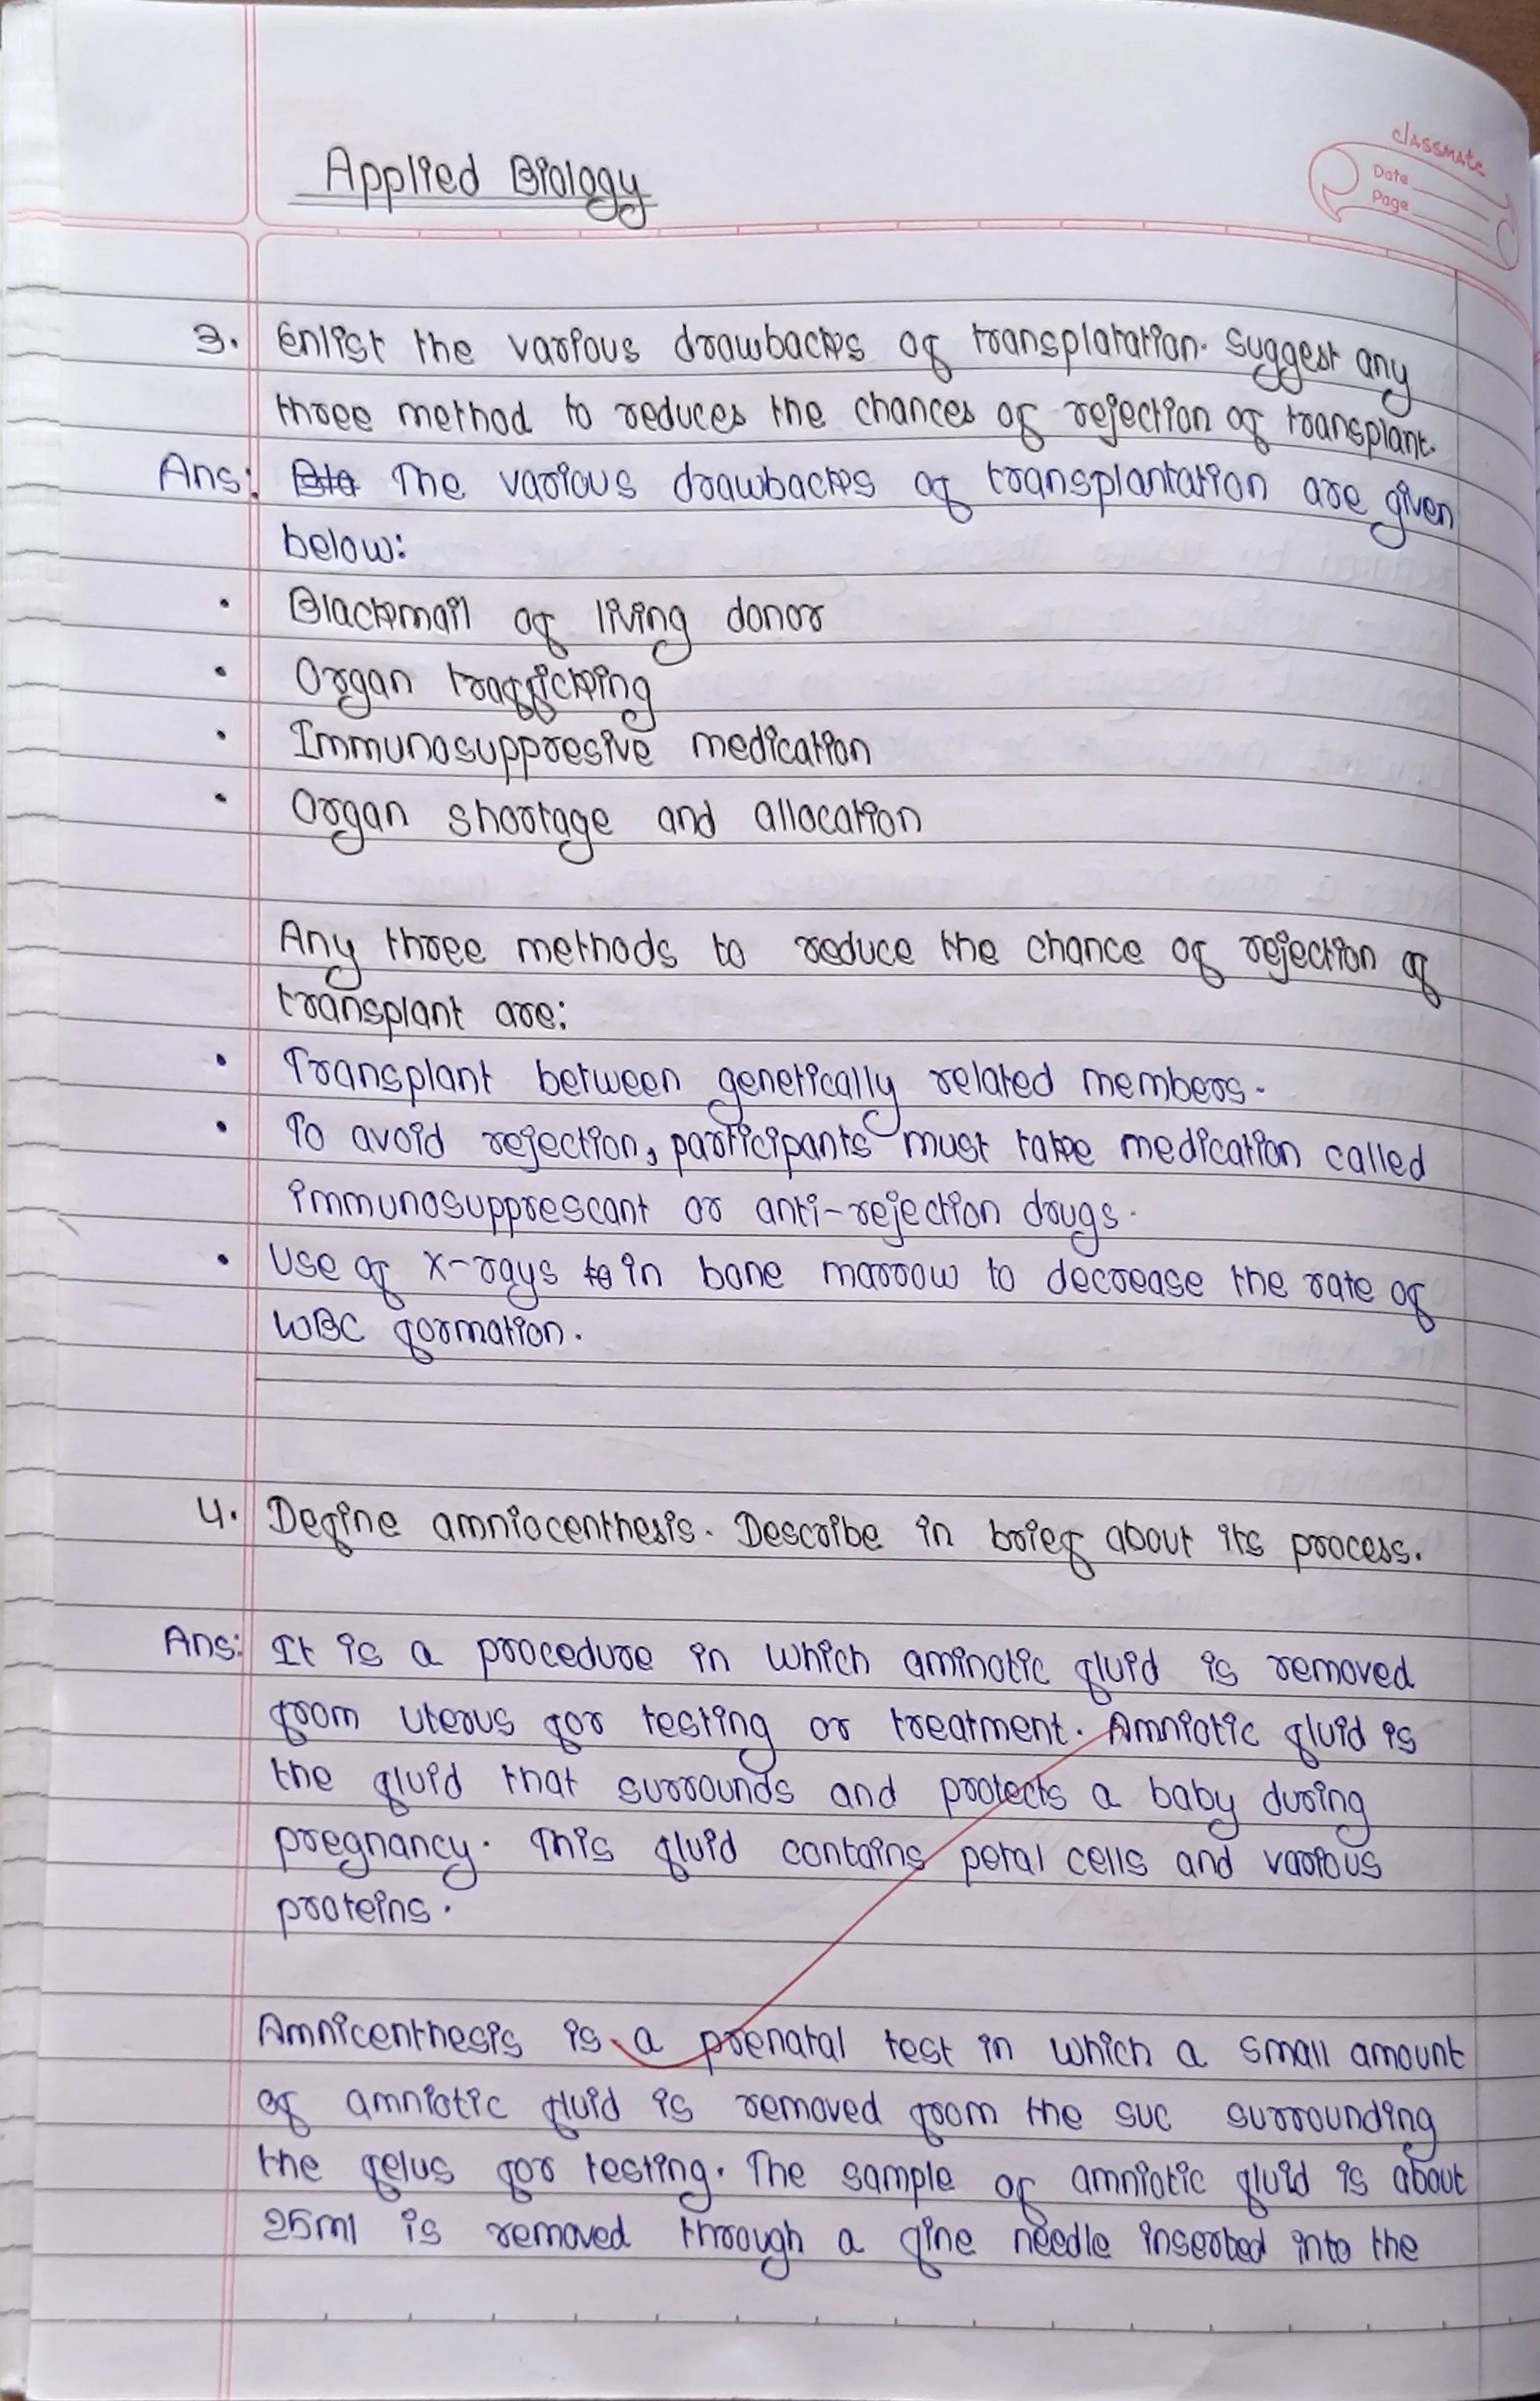 classmate
Date
Page
Applied Biology
3. Enlist the various drawbacks of transplatation. Suggest any
three method to reduces the chances of rejection of transplant.
Ans: The various drawbacks of transplantation are given
below:
• Blackmail of living donor
• Organ trafficking
• Immunosuppresive medication
• Organ shortage and allocation
Any three methods to reduce the chance of rejection of
transplant are:
• Transplant between genetically related members.
• To avoid rejection, participants must take medication called
immunosupprescant or anti-rejection drugs.
• Use of x-rays to in bone marrow to decrease the rate of
WBC formation.
4. Define amniocenthesis. Describe in brief about its process.
Ans: It is a procedure in which aminotic fluid is removed
from uterus for testing or treatment. Amniotic fluid is
the fluid that surrounds and protects a baby during
pregnancy. This fluid contains petal cells and various
proteins.
Amnicenthesis is a prenatal test in which a small amount
of amniotic fluid is removed from the suc surrounding
the felus for testing. The sample of amniotic fluid is about
25ml is removed through a fine needle inserted into the